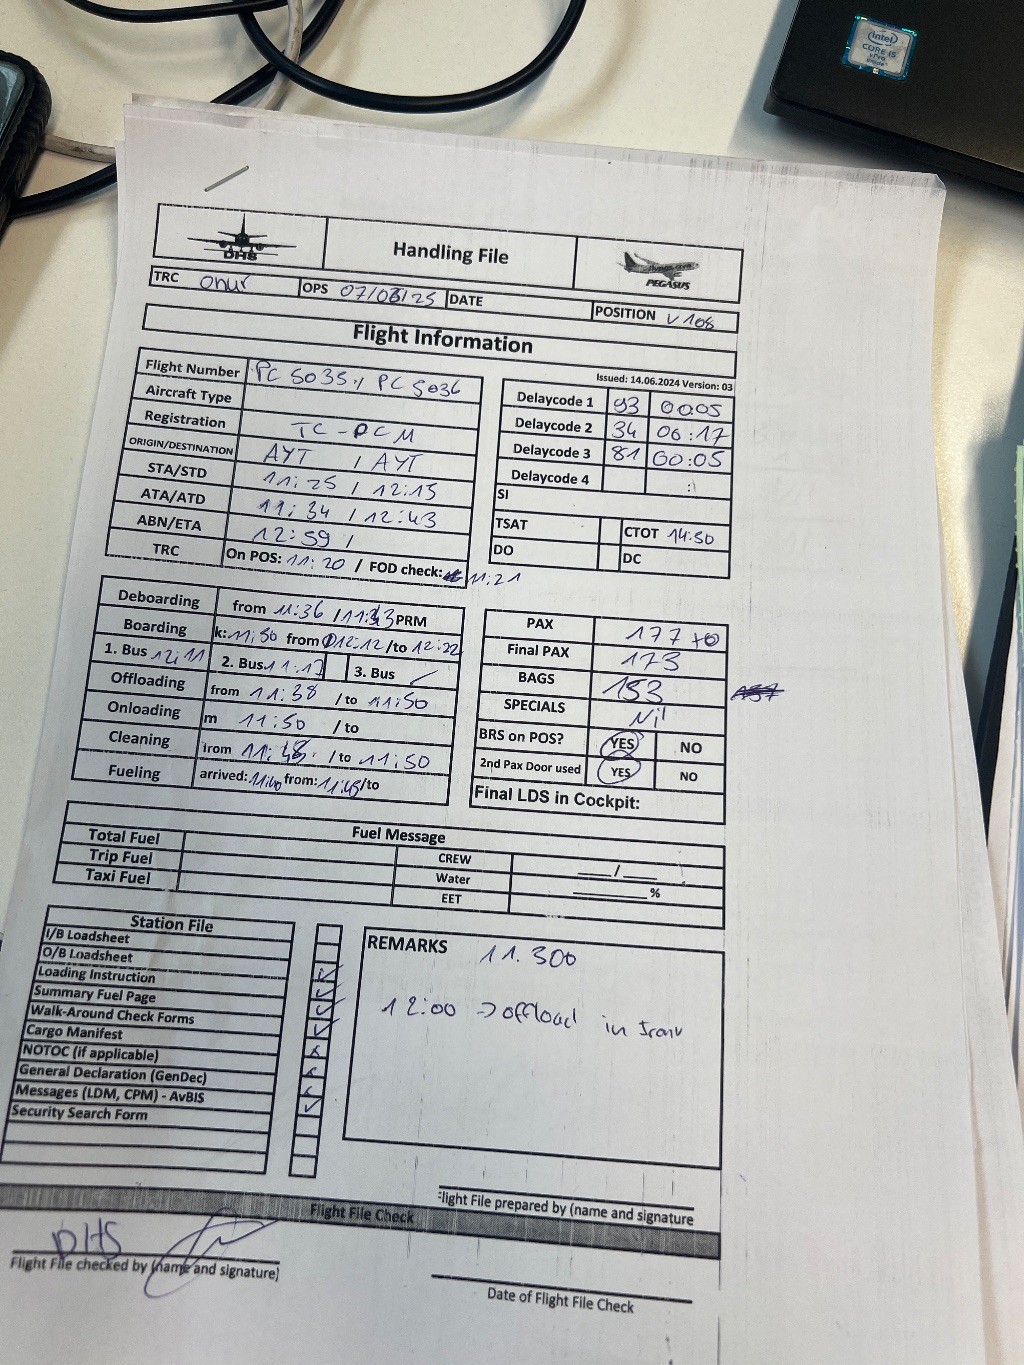 intel
CORE i5
vPro
inside
DHS
Handling File
flypgs.com
PEGASUS
TRC Onur OPS 07/08/25 DATE POSITION V108
Flight Information
Issued: 14.06.2024 Version: 03
Flight Number PC 5035 / PC 5036
Aircraft Type
Registration TC-DCM
ORIGIN/DESTINATION AYT / AYT
STA/STD 11:25 / 12:15
ATA/ATD 11:34 / 12:43
ABN/ETA 12:59 /
TRC On POS: 11:20 / FOD check: 11:21
Delaycode 1 93 00:05
Delaycode 2 34 06:17
Delaycode 3 81 00:05
Delaycode 4 :
SI
TSAT CTOT 14:50
DO DC
Deboarding from 11:36 / 11:43 PRM
Boarding k: 11:50 from 12:12 /to 12:22
1. Bus 12:11 2. Bus 11:17 3. Bus
Offloading from 11:38 / to 11:50
Onloading m 11:50 / to
Cleaning irom 11:48 / to 11:50
Fueling arrived: 11:40 from: 11:45 /to
PAX 177+0
Final PAX 173
BAGS 153
SPECIALS Nil
BRS on POS? YES NO
2nd Pax Door used YES NO
Final LDS in Cockpit:
Fuel Message
Total Fuel CREW ___/___
Trip Fuel Water ______%
Taxi Fuel EET
Station File
I/B Loadsheet
O/B Loadsheet
Loading Instruction
Summary Fuel Page
Walk-Around Check Forms
Cargo Manifest
NOTOC (if applicable)
General Declaration (GenDec)
Messages (LDM, CPM) - AvBIS
Security Search Form
REMARKS 11.300
12:00 -> offload in
Flight File prepared by (name and signature
Flight File Check
DHS
Flight File checked by (name and signature)
Date of Flight File Check